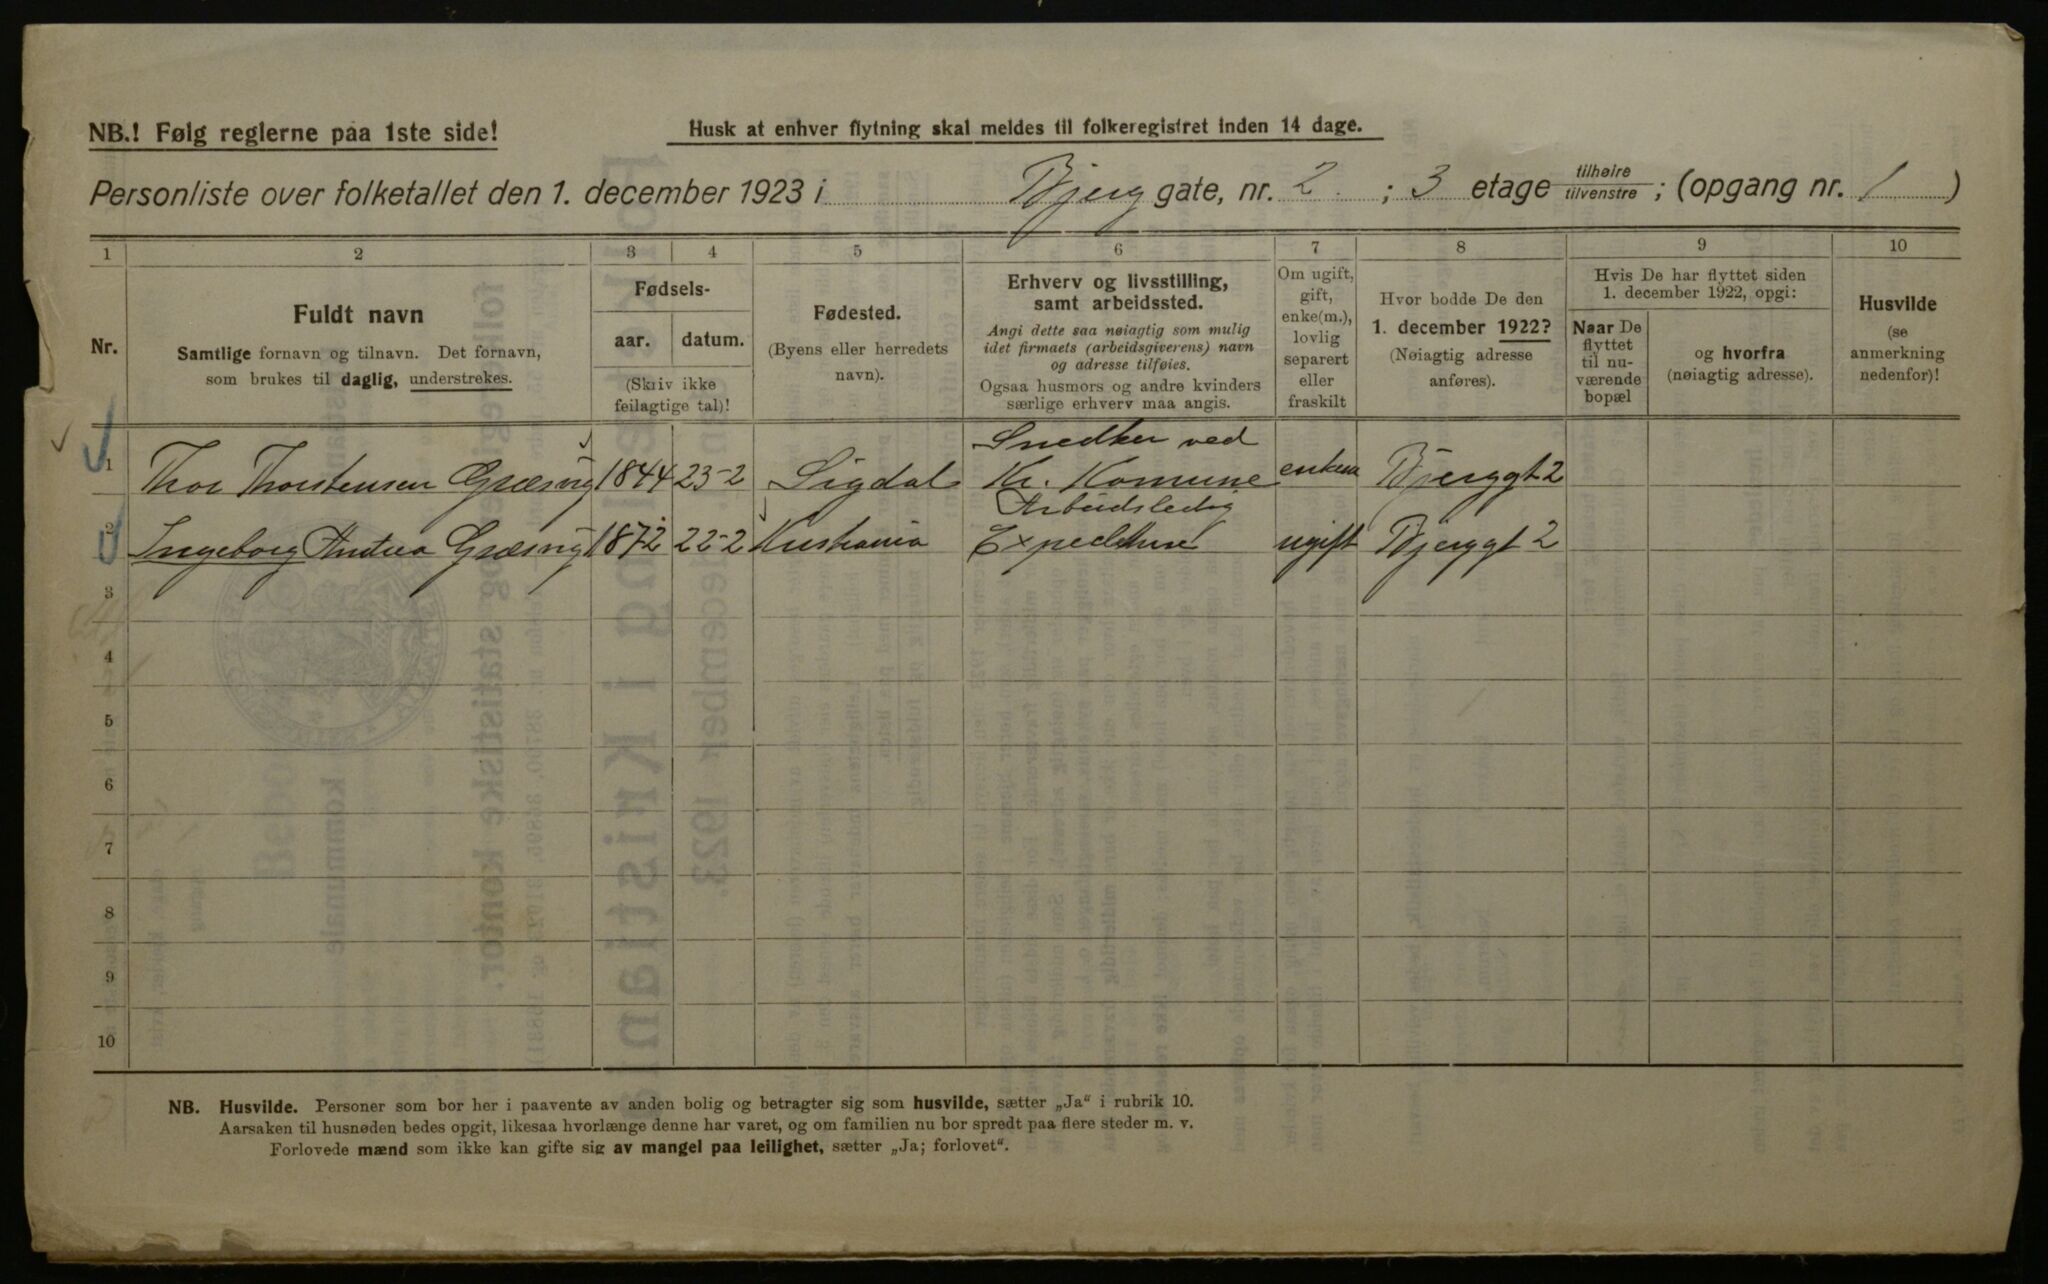 NB.! Følg reglerne paa 1ste side!
Husk at enhver flytning skal meldes til folkeregistret inden 14 dage.
Personliste over folketallet den 1. december 1923 i Bjerg gate, nr. 2 ; 3 etage tilhøire tilvenstre ; (opgang nr. 1 )
1 2 3 4 5 6 7 8 9 10
Nr.
Fuldt navn
Samtlige fornavn og tilnavn. Det fornavn,
som brukes til daglig, understrekes.
Fødsels-
aar. datum.
(Skriv ikke
feilagtige tal)!
Fødested.
(Byens eller herredets
navn).
Erhverv og livsstilling,
samt arbeidssted.
Angi dette saa nøiagtig som mulig
idet firmaets (arbeidsgiverens) navn
og adresse tilføies.
Ogsaa husmors og andre kvinders
særlige erhverv maa angis.
Om ugift,
gift,
enke(m.),
lovlig
separert
eller
fraskilt
Hvor bodde De den
1. december 1922?
(Nøiagtig adresse
anføres).
Hvis De har flyttet siden
1. december 1922, opgi:
Naar De
flyttet
til nu-
værende
bopæl
og hvorfra
(nøiagtig adresse).
Husvilde
(se
anmerkning
nedenfor)!
Snedker ved
1 Thor Thorstensen Græsvig 1844 23-2 Sigdal Kr. Komune enkem Bjerggt 2
Arbeidsledig
2 Ingeborg Antea Græsvig 1872 22-2 Kristiania ugift Bjerggt 2
3
4
5
6
7
8
9
10
NB. Husvilde. Personer som bor her i paavente av anden bolig og betragter sig som husvilde, sætter „Ja“ i rubrik 10.
Aarsaken til husnøden bedes opgit, likesaa hvorlænge denne har varet, og om familien nu bor spredt paa flere steder m. v.
Forlovede mænd som ikke kan gifte sig av mangel paa leilighet, sætter „Ja; forlovet“.